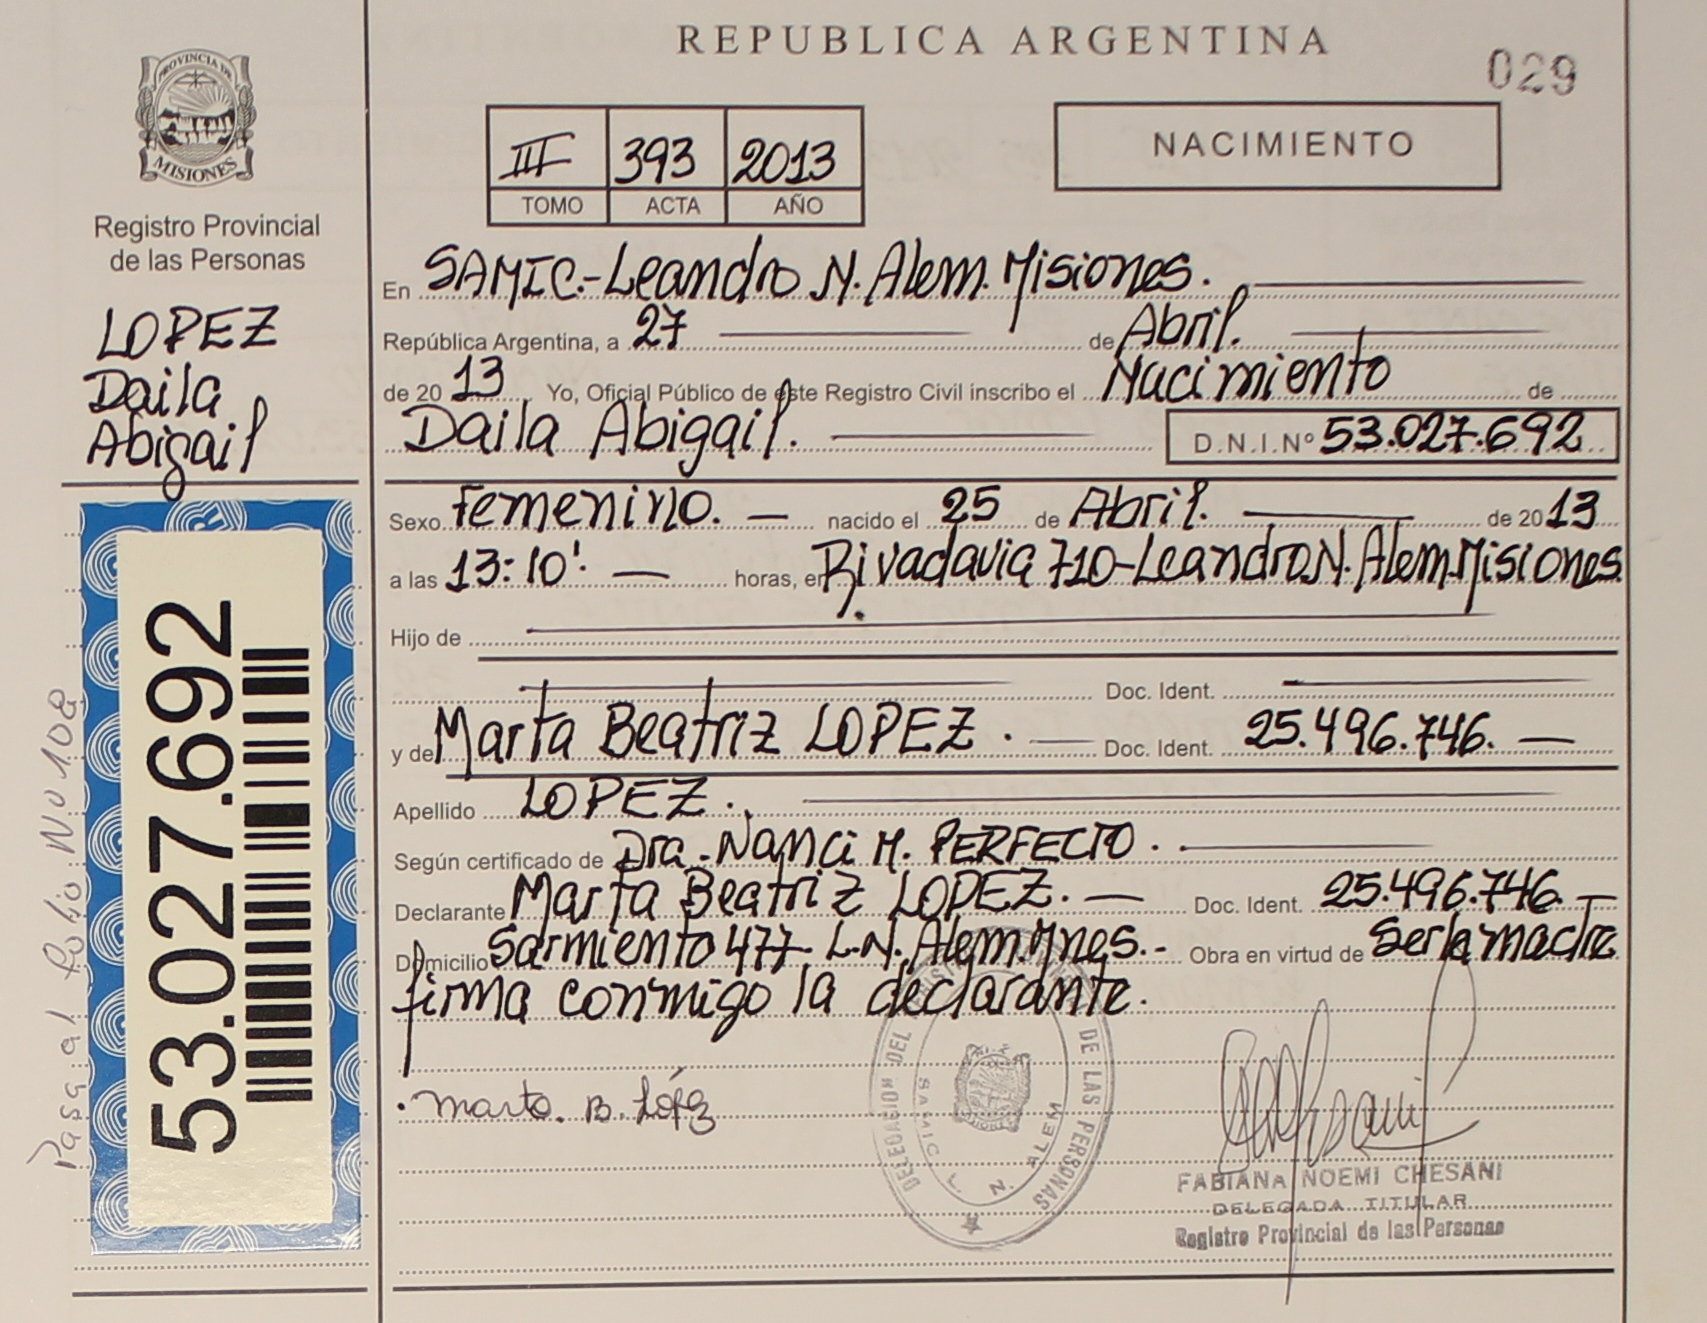 REPUBLICA ARGENTINA
029
PROVINCIA DE
MISIONES
Registro Provincial
de las Personas
LOPEZ
Daila
Abigail
53.027.692
Pasa al Folio Nº 108
III 393 2013
TOMO ACTA AÑO
NACIMIENTO
En SAMIC.-Leandro N. Alem. Misiones.
República Argentina, a 27 de Abril.
de 2013 Yo, Oficial Público de este Registro Civil inscribo el Nacimiento de
Daila Abigail. D.N.I.Nº 53.027.692
Sexo Femenino. — nacido el 25 de Abril. de 2013
a las 13:10'. — horas, en Rivadavia 710-Leandro N. Alem.Misiones.
Hijo de
Doc. Ident.
y de Marta Beatriz LOPEZ. — Doc. Ident. 25.496.746. —
Apellido LOPEZ.
Según certificado de Dra.-Nanci M. PERFECTO.
Declarante Marta Beatriz LOPEZ. — Doc. Ident. 25.496.746. —
Domicilio Sarmiento 477- L.N. Alem.Mnes.- Obra en virtud de Ser la madre
firma conmigo la declarante.
Marta. B. López
DELEGACION DEL DE LAS PERSONAS
SAMIC L. N. ALEM
FABIANA NOEMI CHESANI
DELEGADA TITULAR
Registro Provincial de las Personas